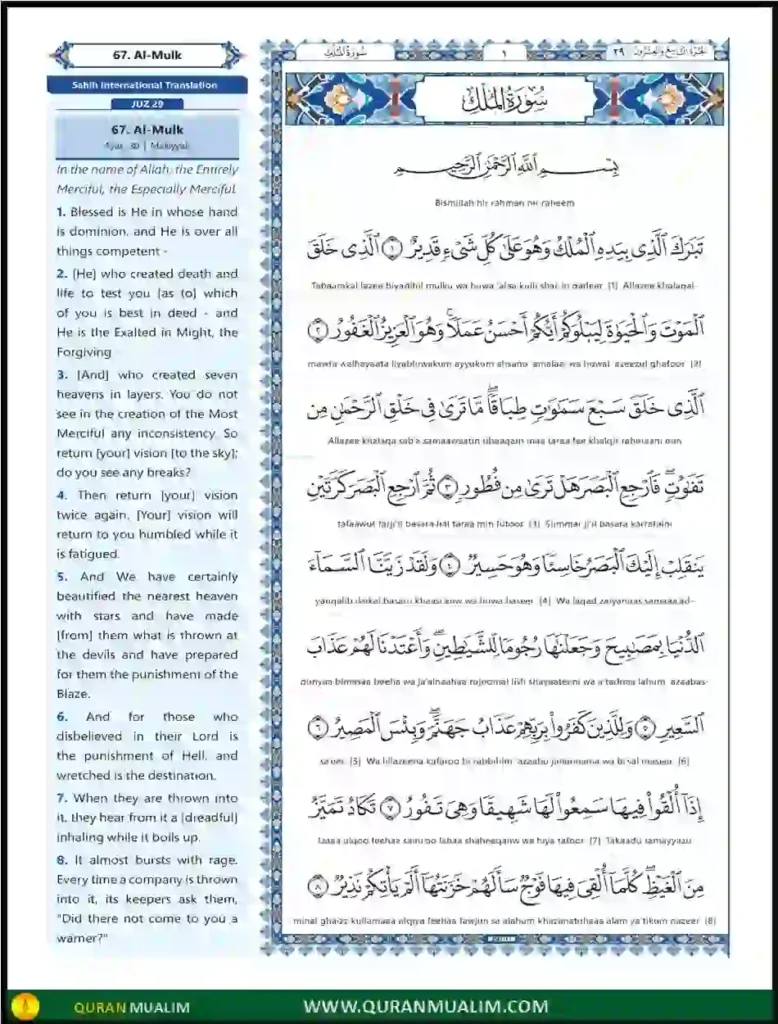 67. Al-Mulk
Sahih International Translation
JUZ 29
67. Al-Mulk
Ayat 30 | Makkiyyah
In the name of Allah, the Entirely
Merciful, the Especially Merciful.
1. Blessed is He in whose hand
is dominion, and He is over all
things competent -
2. [He] who created death and
life to test you [as to] which
of you is best in deed - and
He is the Exalted in Might, the
Forgiving
3. [And] who created seven
heavens in layers. You do not
see in the creation of the Most
Merciful any inconsistency. So
return [your] vision [to the sky];
do you see any breaks?
4. Then return [your] vision
twice again. [Your] vision will
return to you humbled while it
is fatigued.
5. And We have certainly
beautified the nearest heaven
with stars and have made
[from] them what is thrown at
the devils and have prepared
for them the punishment of the
Blaze.
6. And for those who
disbelieved in their Lord is
the punishment of Hell, and
wretched is the destination.
7. When they are thrown into
it, they hear from it a [dreadful]
inhaling while it boils up.
8. It almost bursts with rage.
Every time a company is thrown
into it, its keepers ask them,
"Did there not come to you a
warner?"
سُورَةُ المُلْكِ
١
الجزء التاسع والعشرون ٢٩
سُورَةُ المُلْكِ
بِسْمِ اللَّهِ الرَّحْمَٰنِ الرَّحِيمِ
Bismillah hir rahman nir raheem
تَبَارَكَ الَّذِي بِيَدِهِ الْمُلْكُ وَهُوَ عَلَىٰ كُلِّ شَيْءٍ قَدِيرٌ ١ الَّذِي خَلَقَ
(1) Allazee khalaqal-
الْمَوْتَ وَالْحَيَوٰةَ لِيَبْلُوَكُمْ أَيُّكُمْ أَحْسَنُ عَمَلًا ۚ وَهُوَ الْعَزِيزُ الْغَفُورُ ٢
mawta walhayaata liyabluwakum ayyukum ahsanu 'amalaa; wa huwal 'azeezul ghafoor (2)
الَّذِي خَلَقَ سَبْعَ سَمَٰوَٰتٍ طِبَاقًا ۖ مَّا تَرَىٰ فِي خَلْقِ الرَّحْمَٰنِ مِن
Allazee khalaqa sab'a samaawaatin tibaaqam maa taraa fee khalqir rahmaani min
تَفَٰوُتٍ ۖ فَارْجِعِ الْبَصَرَ هَلْ تَرَىٰ مِن فُطُورٍ ٣ ثُمَّ ارْجِعِ الْبَصَرَ كَرَّتَيْنِ
tafaawut farji'il basara hal taraa min futoor (3) Summar ji'il basara karratayni
يَنقَلِبْ إِلَيْكَ الْبَصَرُ خَاسِئًا وَهُوَ حَسِيرٌ ٤ وَلَقَدْ زَيَّنَّا السَّمَاءَ
yanqalib ilaikal basaru khaasi'anw wa huwa haseer (4) Wa laqad zaiyannas samaaa'ad-
الدُّنْيَا بِمَصَٰبِيحَ وَجَعَلْنَٰهَا رُجُومًا لِّلشَّيَٰطِينِ ۖ وَأَعْتَدْنَا لَهُمْ عَذَابَ
السَّعِيرِ ٥ وَلِلَّذِينَ كَفَرُوا بِرَبِّهِمْ عَذَابُ جَهَنَّمَ ۖ وَبِئْسَ الْمَصِيرُ ٦
sa'eer (5) Wa lillazeena kafaroo bi rabbihim 'azaabu jahannama wa bi'sal maseer (6)
إِذَا أُلْقُوا فِيهَا سَمِعُوا لَهَا شَهِيقًا وَهِيَ تَفُورُ ٧ تَكَادُ تَمَيَّزُ
Izaaa ulqoo feehaa sami'oo lahaa shaheeqanw wa hiya tafoor (7) Takaadu tamayyazu
مِنَ الْغَيْظِ ۖ كُلَّمَا أُلْقِيَ فِيهَا فَوْجٌ سَأَلَهُمْ خَزَنَتُهَا أَلَمْ يَأْتِكُمْ نَذِيرٌ ٨
minal ghaizz kullamaaa ulqiya feehaa fawjun sa alahum khazanatuhaaa alam ya'tikum nazeer (8)
QURAN MUALIM
WWW.QURANMUALIM.COM